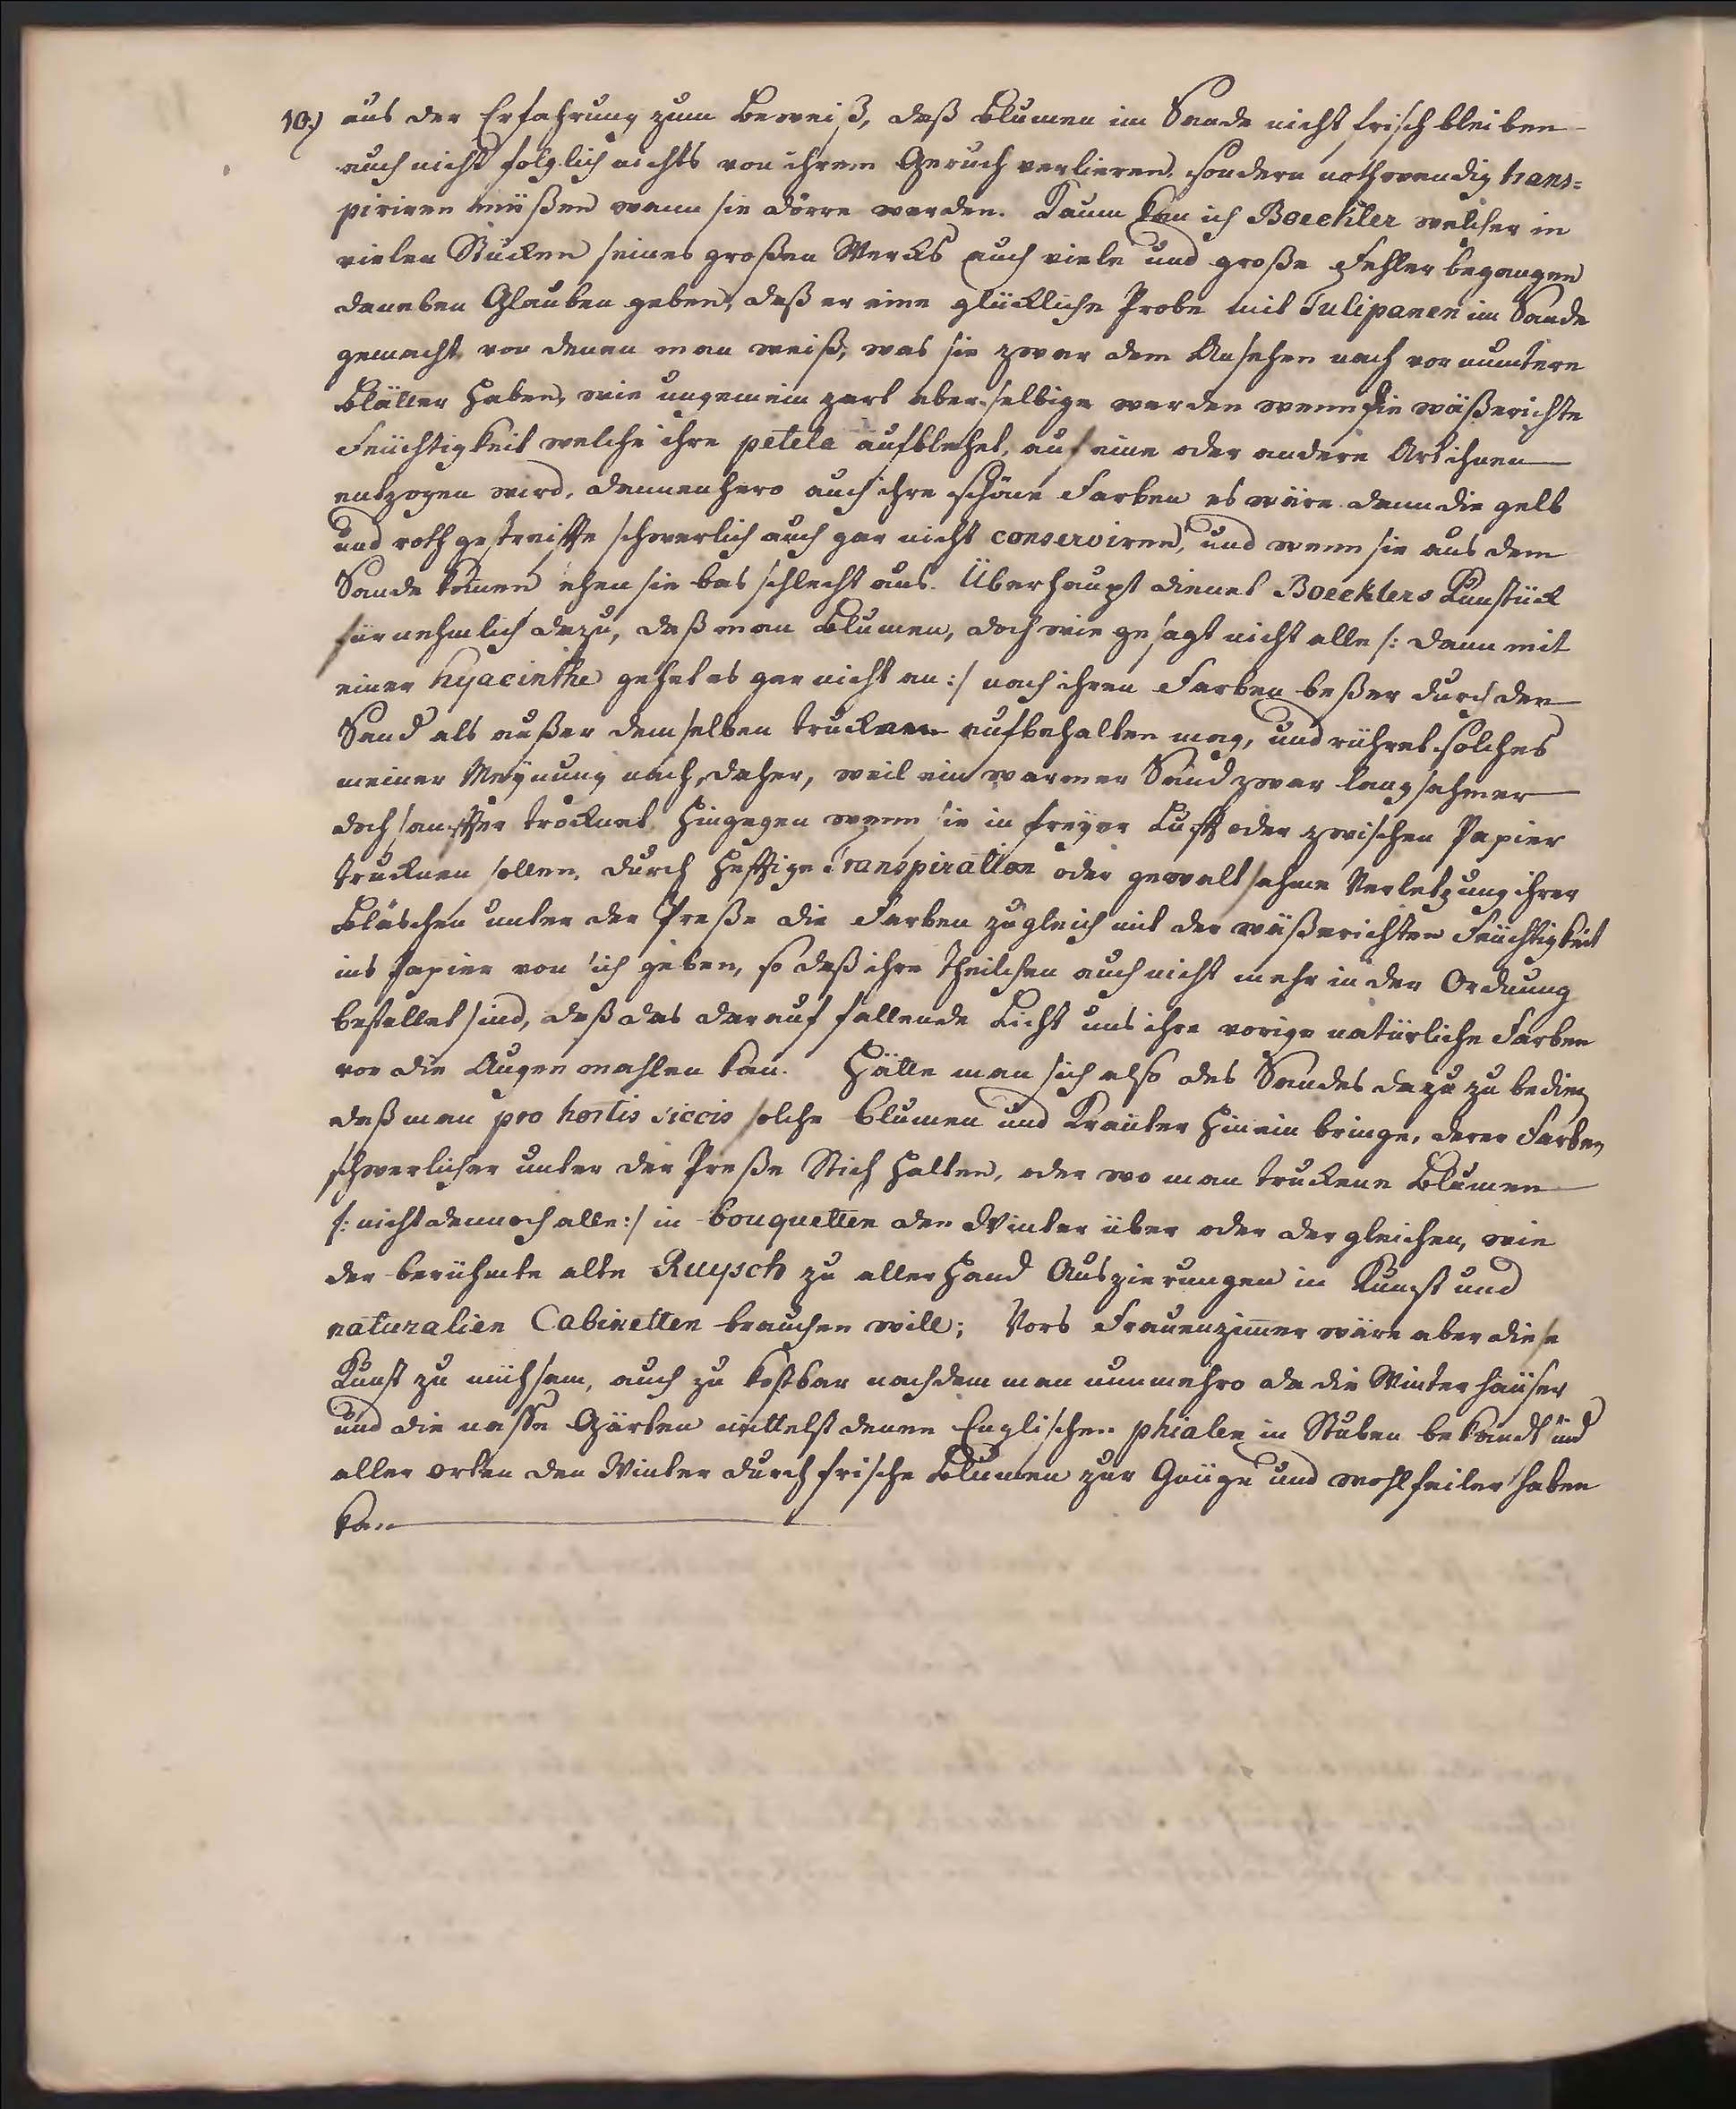 10.) aus der Erfahrung zum Beweiß, daß Blumen im Sande nicht frisch bleiben
auch nicht folglich nichts von ihrem Geruch verlieren, sondern nothwendig trans=
piriren müßen wann sie dörre werden. Kaum kan ich Boeckler welcher in
vielen Stücken seines großen Wercks auch viele und große Fehler begangen
daneben Glauben geben, daß er eine glückliche Probe mit Tulipanen im Sande
gemacht, von denen man weiß, was sie zwar dem Ansehen nach vor muntere
Blätter haben, wie ungemein zart aber selbige werden wenn die wäßerichte
Feuchtigkeit welche ihre petela aufblehet, auf eine oder andere Art ihnen
entzogen wird, dannenhero auch ihre schöne Farben es wäre dann die gelb
und roth gestreiffte schwerlich auch gar nicht conserviren, und wenn sie aus dem
Sande kom̄en sehen sie bas schlecht aus. Überhaupt dienet Boecklers Kunstück
fürnehmlich dazu, daß man Blumen, doch wie gesagt nicht alle /: dann mit
einer hyacinthe gehet es gar nicht an :/ nach ihren Farben beßer durch den
Sand als außer demselben trucknen aufbehalten mag, und rühret solches
meiner Meynung nach, daher, weil ein warmer Sand zwar langsahmer
doch sanffter trocknet hingegen wenn sie in freyer Lufft oder zwischen Papier
trucknen sollen, durch hefftige Transpiration oder gewaltsahme Verletzung ihrer
Bläschen unter der Preße die Farben zugleich mit der wäßerichten Feuchtigkeit
ins Papier von sich geben, so daß ihre Theilchen auch nicht mehr in der Ordnung
bestellet sind, daß das darauf fallende Licht uns ihre vorige natürliche Farben
vor die Augen mahlen kan. Hätte man sich also des Sandes dazu zu bedien
daß man pro hortis siccis solche Blumen und Kräuter hinein bringe, derer Farben
schwerlicher unter der Preße Stich halten, oder wo man truckene Blumen
/: nicht dennoch alle :/ in bouquetten den Winter über oder dergleichen, wie
der berühmte alte Ruysch zu allerhand Auszierungen in Kunst und
naturalien Cabinetten brauchen will; Vors Frauenzim̄er wäre aber diese
Kunst zu mühsam, auch zu kostbar nachdem man nunmehro da die Winterhäuser
und die nasse Gärten mittelst denen Englischen phialen in Stuben bekandt sind
aller orten den Winter durch frische Blumen zur Gnüge und wohlfeiler haben
kan